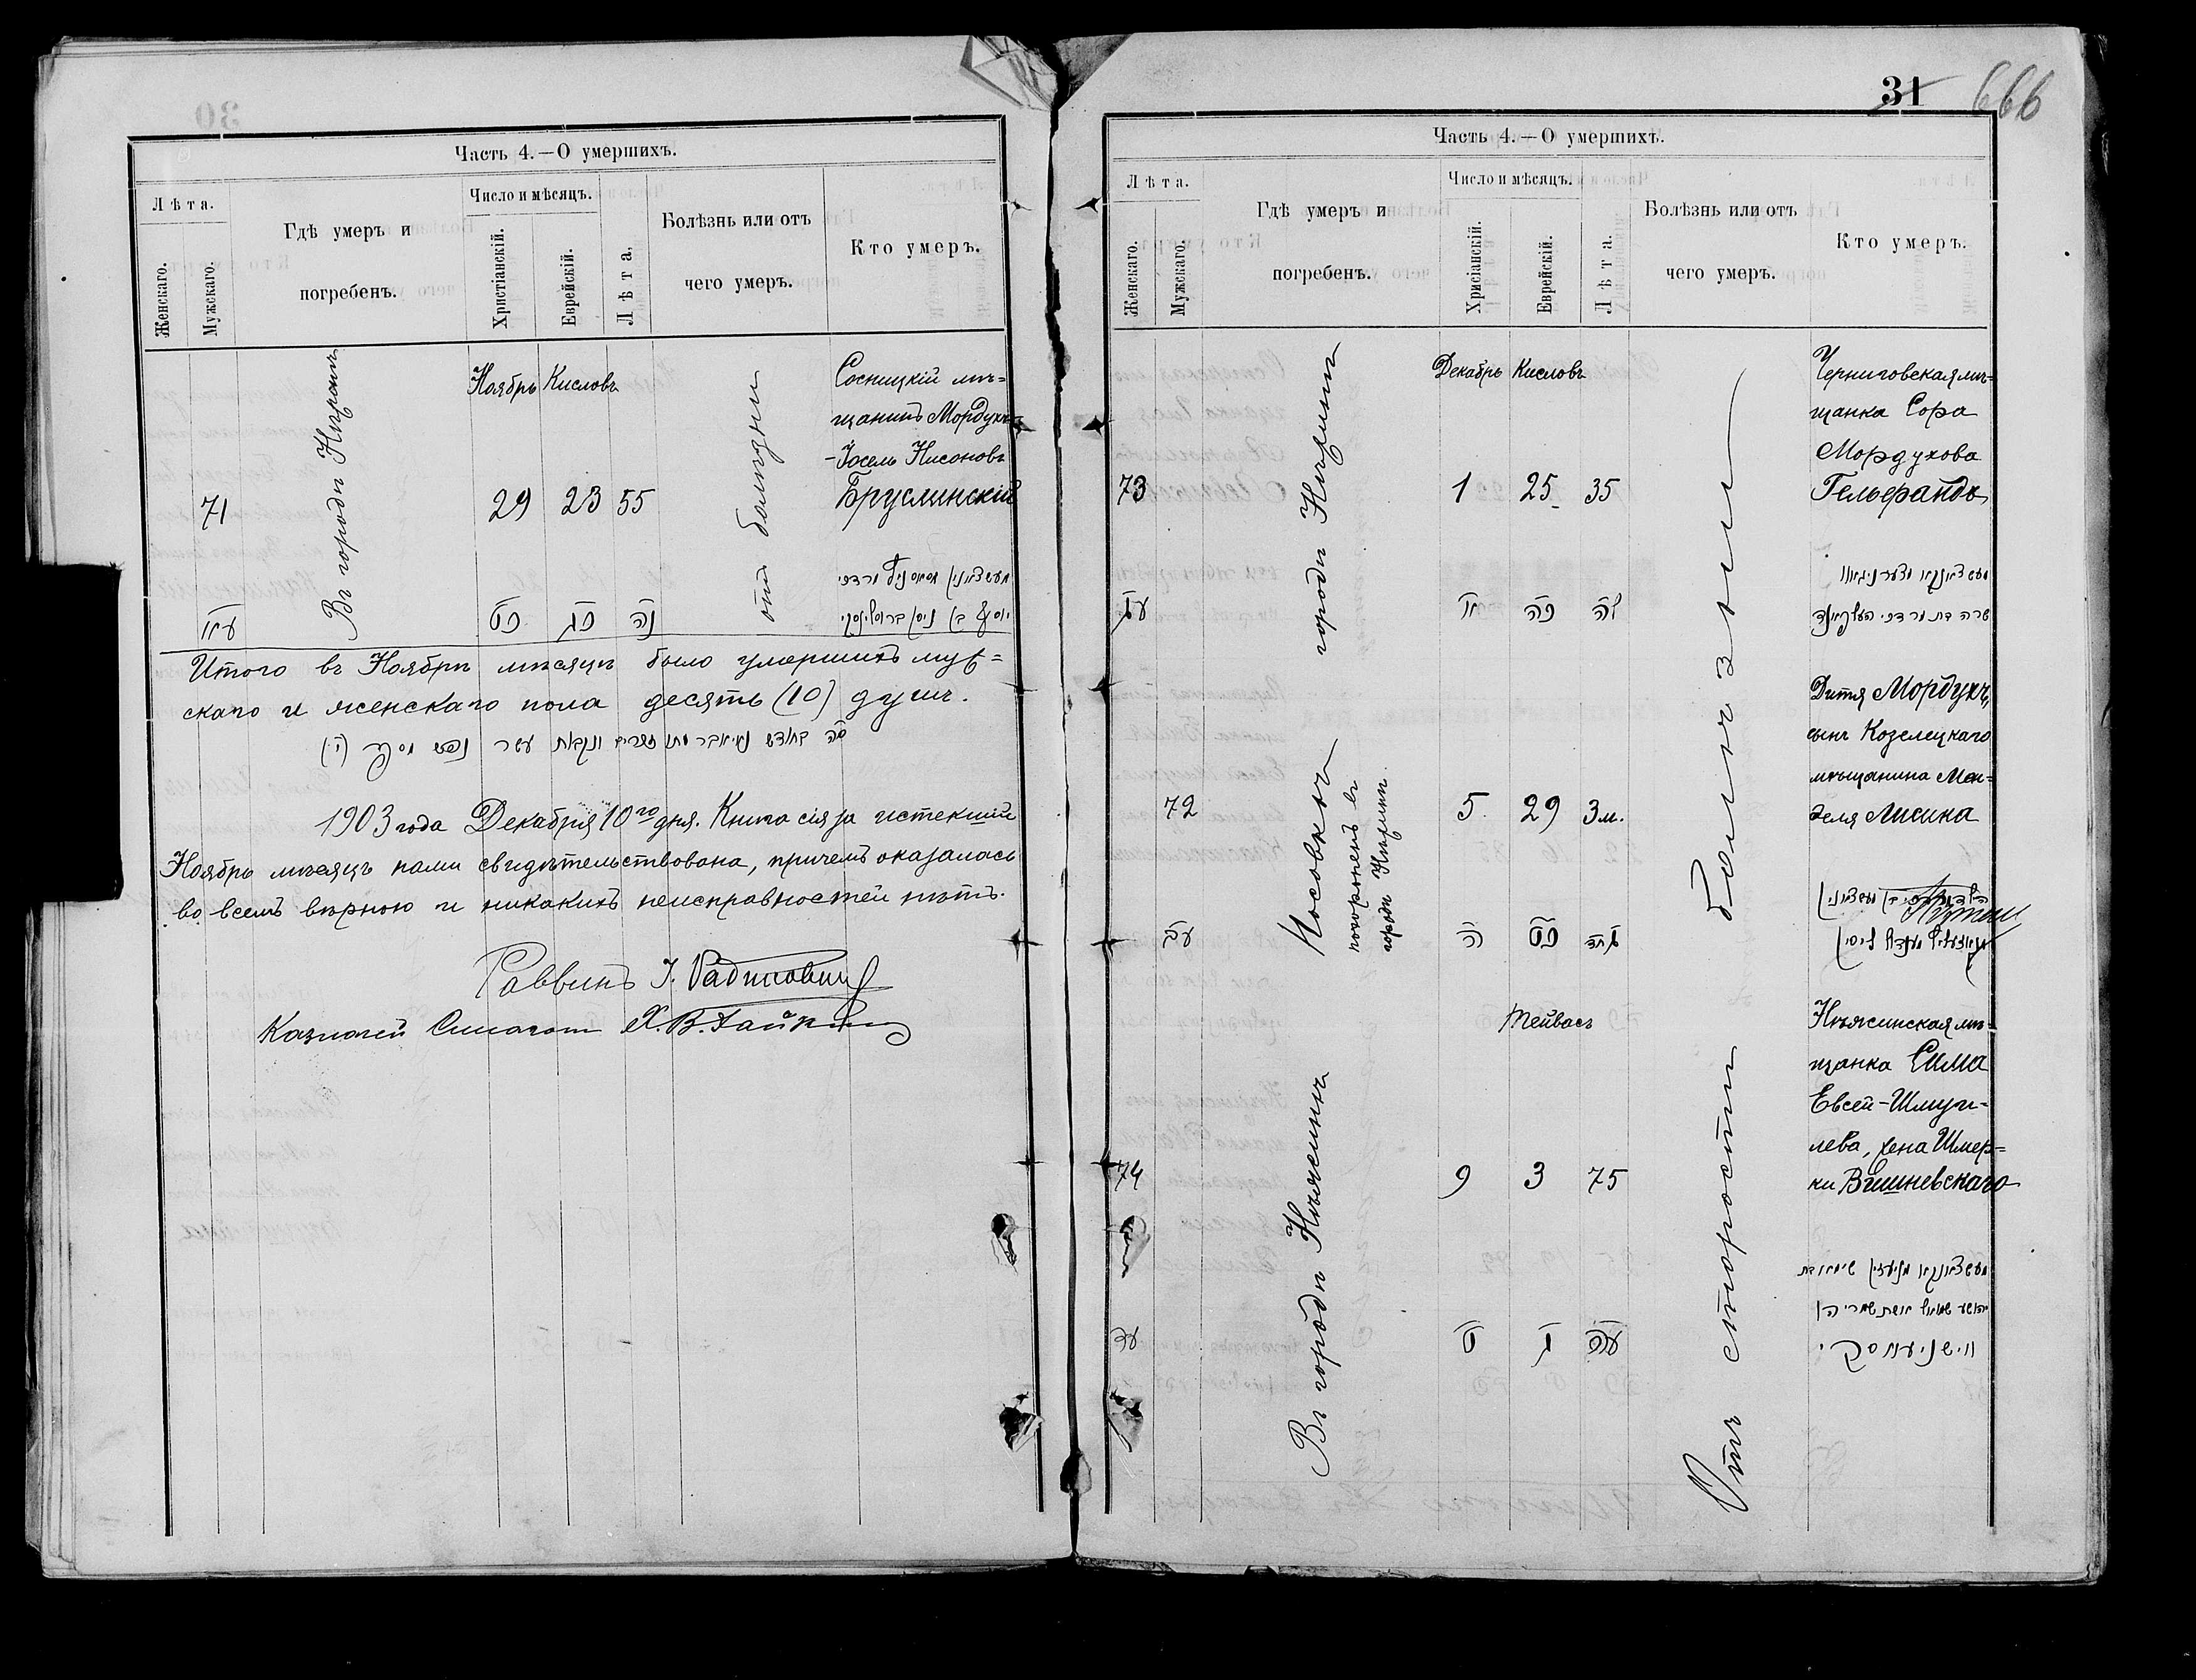 Часть 4.—О умершихъ.
Лѣта.
Женскаго.
Мужскаго.
Гдѣ умеръ и
погребенъ.
Число и мѣсяцъ.
Христіанскій.
Еврейскій.
Лѣта.
Болѣзнь или отъ
чего умеръ.
Кто умеръ.
71
Въ городѣ Нѣжинѣ
Ноябрь Кисловъ
29 23 55
отъ болѣзни
Сосницкій мѣ=
щанинъ Мордухъ
-Іосель Нисоновъ
Бруслинскій
כט כג נה
יוסף בן ניסן ברוסלינסקי
Итого въ Ноябрѣ мѣсяцѣ было умершихъ муж=
скаго и женскаго пола десять (10) душъ.
1903 года Декабря 10го дня. Книга сія за истекшій
Ноябрь мѣсяцъ нами свидѣтельствована, причемъ оказалась
во всемъ вѣрною и никакихъ неисправностей нѣтъ.
Раввинъ
Казначей
31 666
Часть 4.—О умершихъ.
Лѣта.
Женскаго.
Мужскаго.
Гдѣ умеръ и
погребенъ.
Число и мѣсяцъ.
Хрисіанскій.
Еврейскій.
Лѣта.
Болѣзнь или отъ
чего умеръ.
Кто умеръ.
73
городѣ Нѣжинѣ
Декабрь Кисловъ
1 25 35
болѣзни
Черниговская мѣ=
щанка Сора
Мордухова
Гельфандъ
עג א כה לה
שרה בת מרדכי העלפאנד
72
Носовкѣ
похороненъ въ
городѣ Нѣжинѣ
5 29 3 м.
Дитя Мордухъ,
сынъ Козелецкаго
мѣщанина Мен=
деля Лисина
עב ה כט
74
Въ городѣ Нѣжинѣ
Тейвасъ
9 3 75
Отъ старости
Нѣжинская мѣ=
щанка Сима
Евсей-Шмуи=
лева, жена Шмер=
ки Вишневскаго
עד ט ג עה
ווישניעווסקי